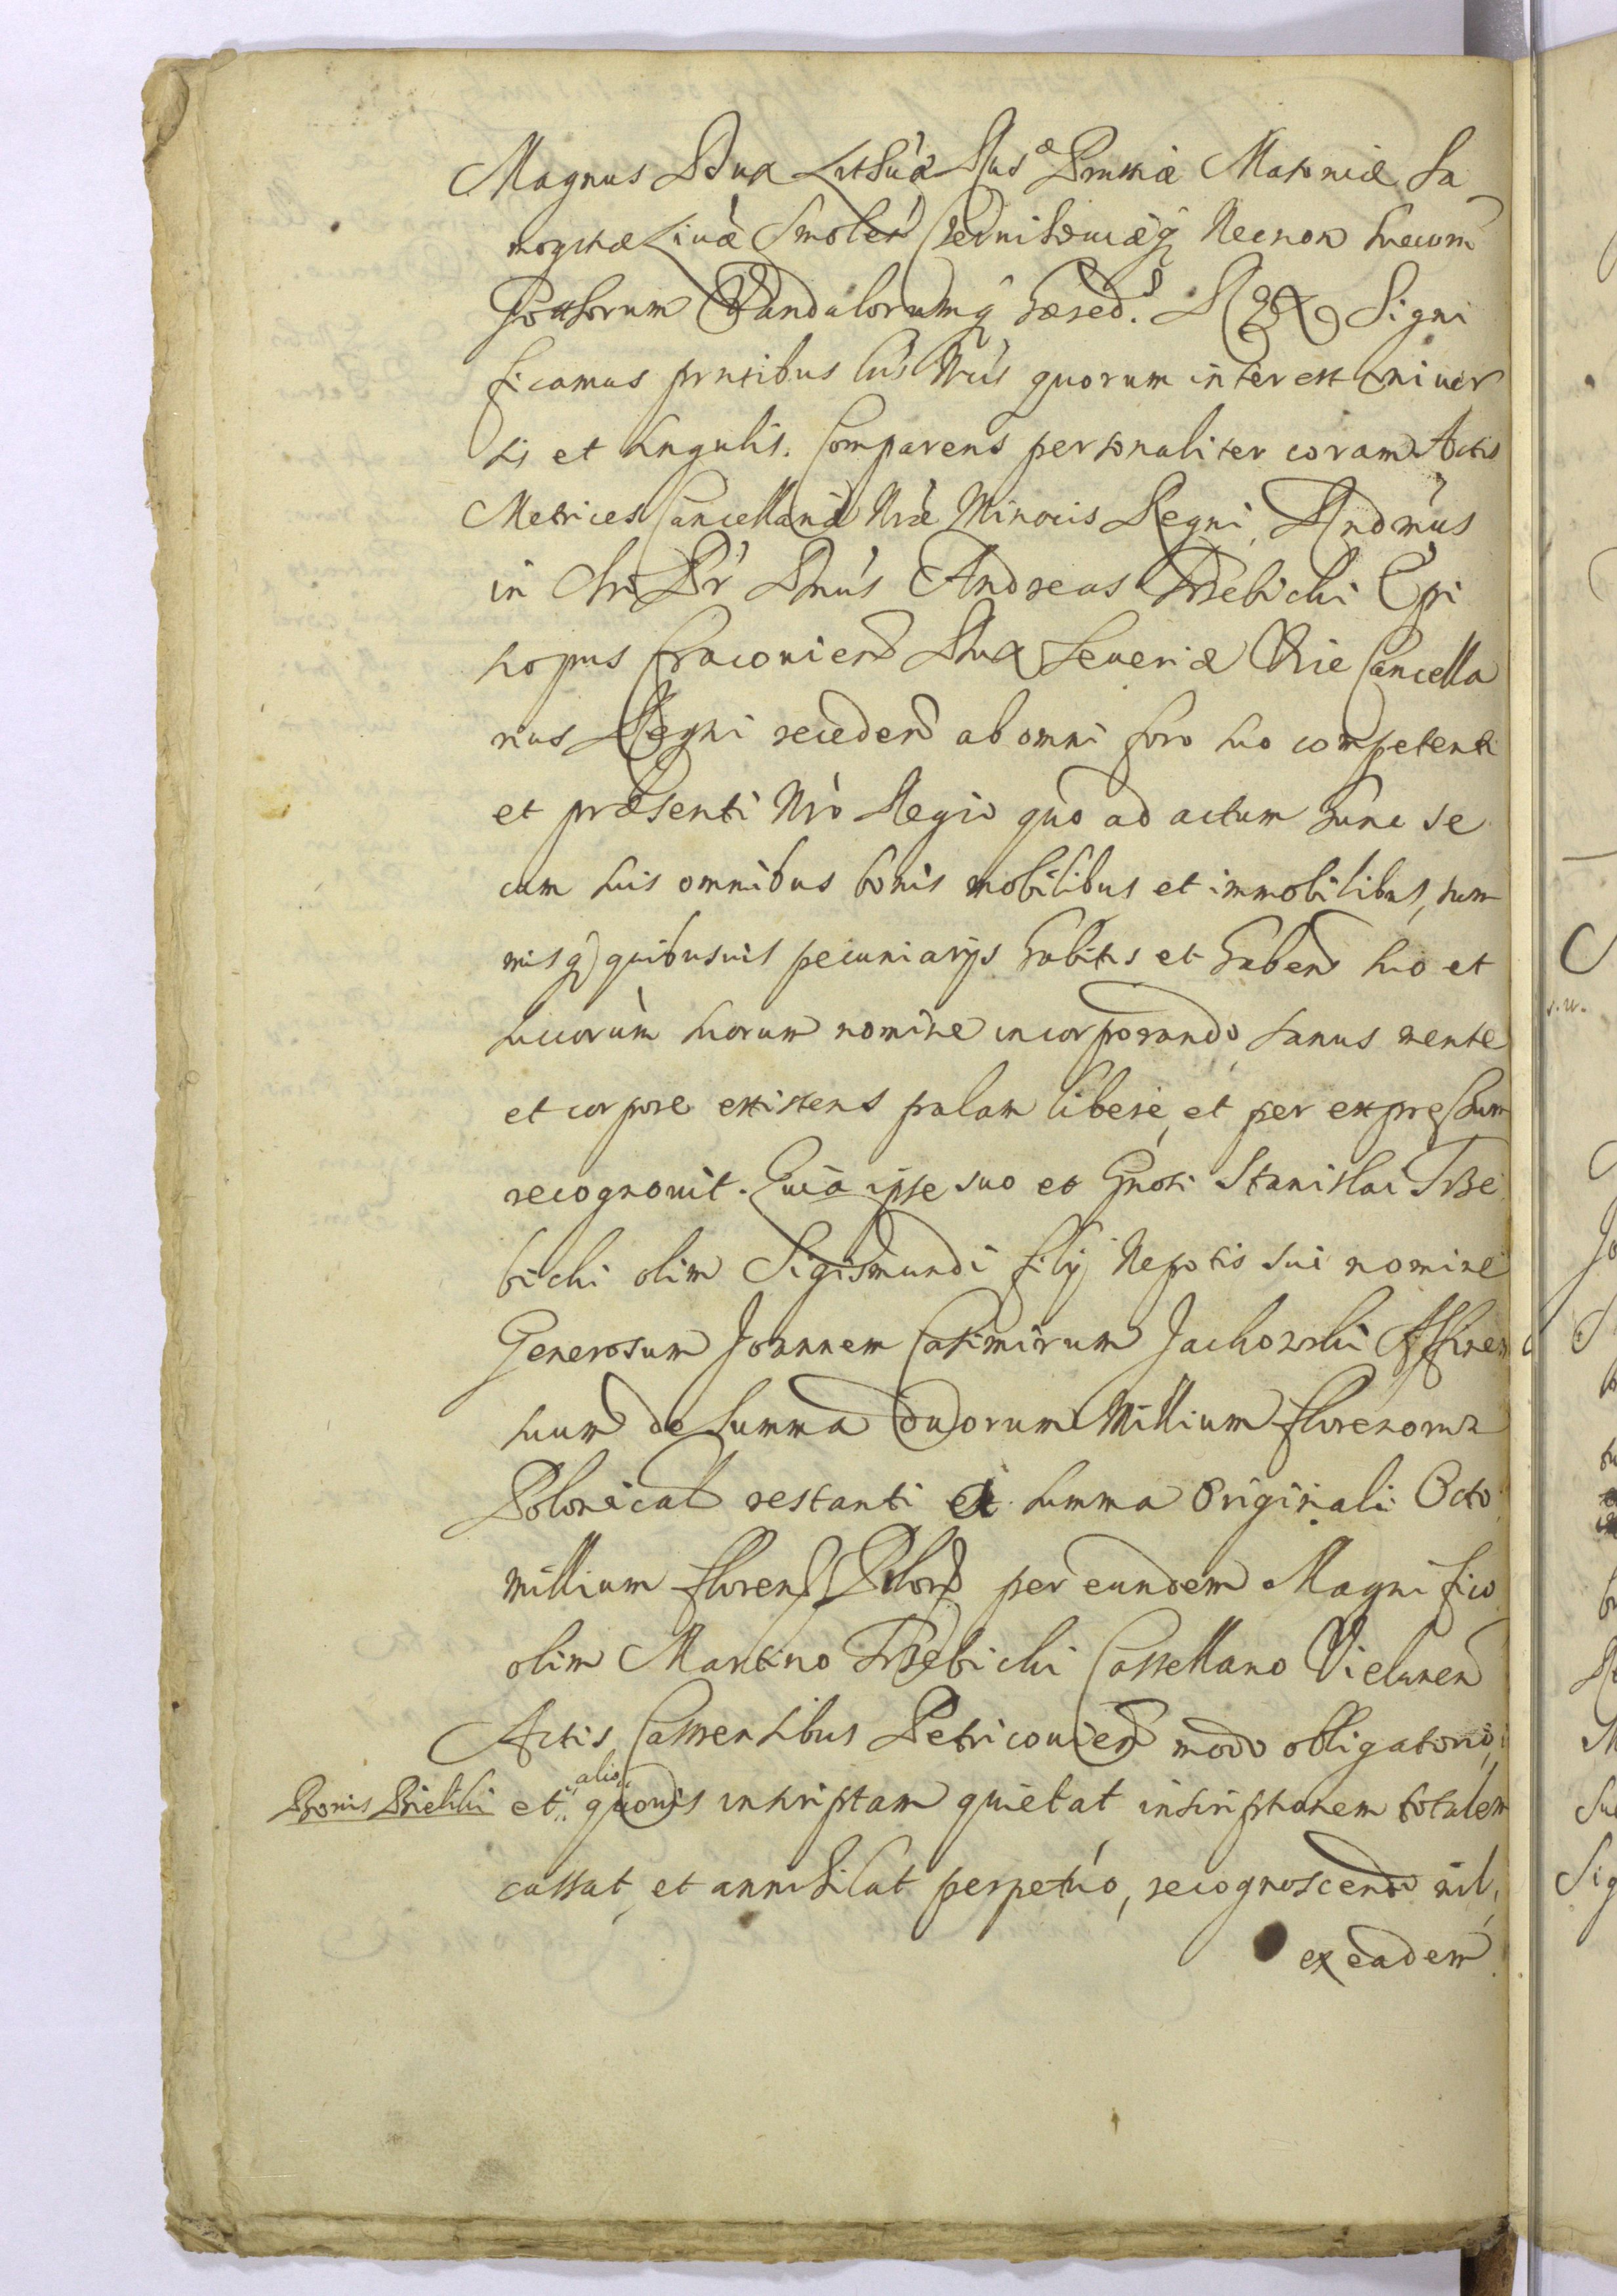 Magnus Dux Lithuae Rusae Prussiae Masoniae Sa
mogitiae Livae Smolen Czernihoviaeq Necnon Suecum
Gotthorum Vandalorumq haered. Rex Signi
ficamus pntibus lris Nris quorum interest univer
sis et singulis. Comparens personaliter coram Actis
Metrices Cancellariae Nrae Minoris Regni, Rndmus
in Chro Pr Dnus Andreas Trzebicki Epi
scopus Cracovien Dux Severiae Vice Cancella
rius Regni recedend ab omni foro suo competenti
et praesenti Nro Regio quo ad actum hunc se
cum suis omnibus bonis mobilibus et immobilibus, sum
misq quibusvis pecuniarijs habitis et habend suo et
succorum suorum nomine incorporando, sanus mente
et corpore existens palam libere, et per expressum
recognovit. Quia ipse suo et Gnosi Stanislai Trze
bicki olim Sigismundi filij Nepotis sui nomine
Generosum Joannem Casimirum Jackowski Affinem
suum de summa duorum Millium florenorum
Polonical restanti ex summa Originali Octo
millium floren Polon per eundem Magnifico
olim Martino Trzebicki Castellano Vielunen
Actis Castrensibus Petricovien modo obligatorio,
Bonis Bielski et alio quovis inscriptam quietat inscriptionem totalem
cassat, et annihilat perpetuo, recognoscendo nil,
ex eadem